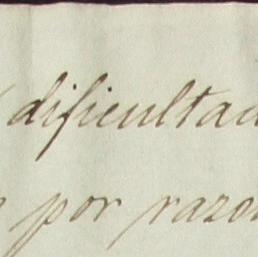 dificultad
por razon